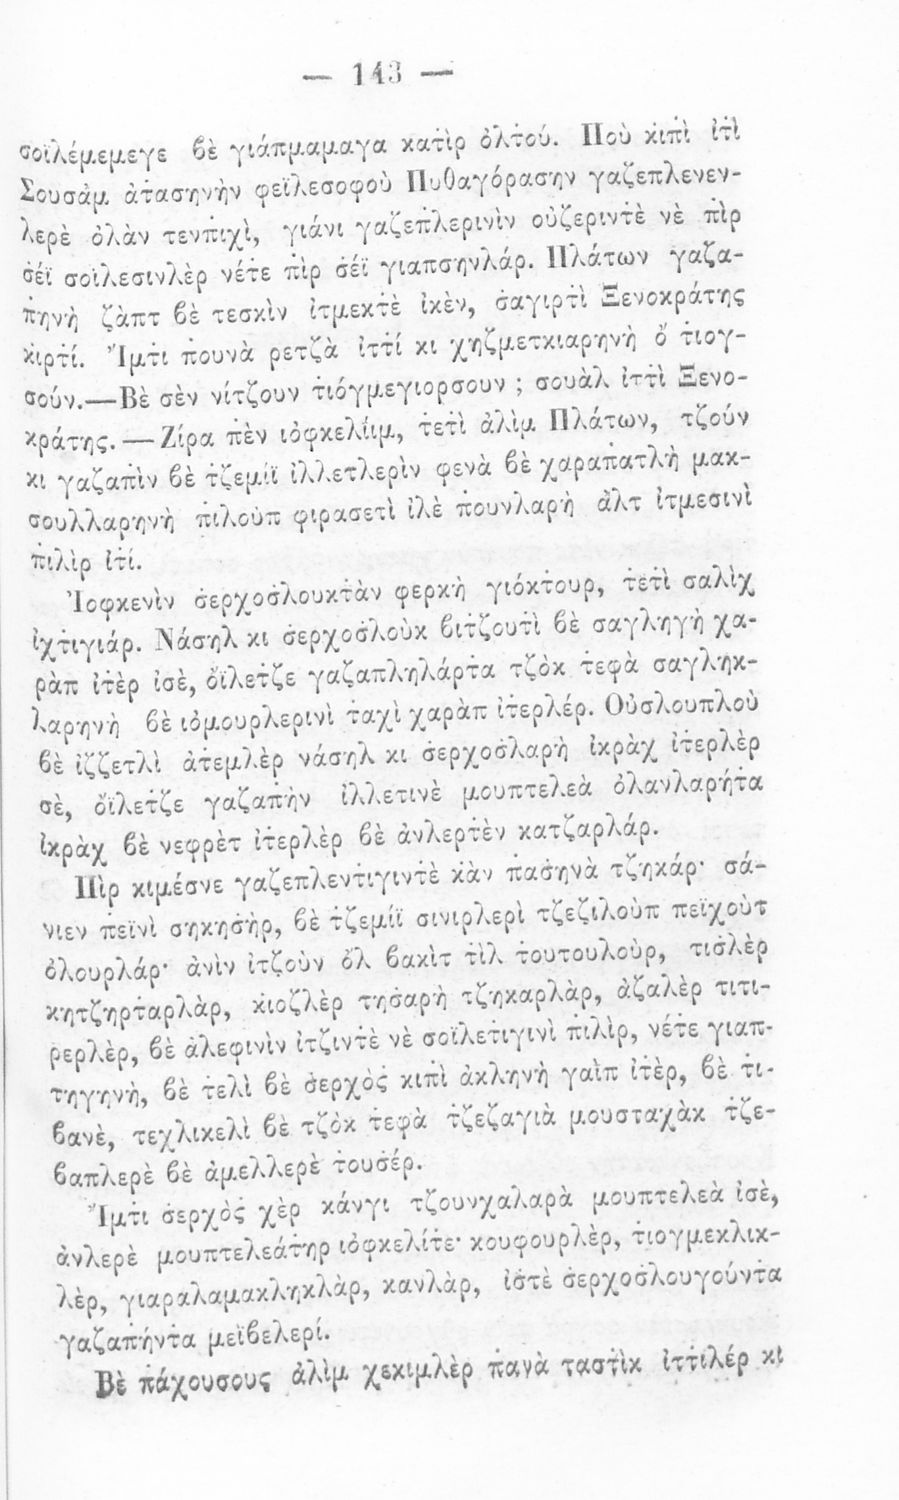 — 143 —
σοϊλέμεμεγε βὲ γιάπμαμαγα κατὶρ ὀλτού. Ποὺ κιπὶ ἰτὶ
Σουσὰμ ἀτασηνὴν φεϊλεσοφοὺ Πυθαγόρασην γαζεπλενεν-
λερὲ ὀλὰν τενπιχὶ, γιάνι γαζεπ̇λερινὶν οὐζεριντὲ νὲ π̇ὶρ
σ̇έϊ σοϊλεσινλὲρ νέτε π̇ὶρ σ̇έϊ γιαπσηνλάρ. Πλάτων γαζα-
π̇ηνὴ ζὰπτ βὲ τεσκὶν ἰτμεκτὲ ἰκὲν, σ̇αγιρτὶ Ξενοκράτης
κιρτί. Ἴμτ̇ι π̇ουνὰ ρετζὰ ἰττί κι χηζμετκιαρηνὴ ὃ τ̇ιογ-
σούν.—Βὲ σὲν νίτζουν τ̇ιόγμεγιορσουν ; σουὰλ ἰττὶ Ξενο-
κράτης. — Ζίρα π̇ὲν ἰόφκελἰιμ, τ̇ετὶ ἀλὶμ Πλάτων, τζούν
κι γαζαπ̇ὶν βὲ τ̇ζεμίϊ ἰλλετλερὶν φενὰ βὲ χαραπ̇ατλὴ μακ-
σουλλαρηνὴ π̇ιλοὺπ φιρασετὶ ἰλὲ π̇ουνλαρὴ ἂλτ ἰτμεσινὶ
π̇ιλὶρ ἰτί.
Ἰοφκενὶν σ̇ερχοσ̇λουκτ̇ὰν φερκὴ γιόκτουρ, τ̇ετὶ σαλὶχ
ἰχτ̇ιγιάρ. Νάσηλ κι σ̇ερχοσ̇λοὺκ βιτζουτὶ βὲ σαγληγὴ χα-
ρὰπ ἰτ̇ὲρ ἰσὲ, ὄϊλετ̇ζε γαζαπληλάρτα τζὸκ τ̇εφὰ σαγληκ-
λαρηνὴ βὲ ἰόμουρλερινὶ τ̇αχὶ χαρὰπ ἰτ̇ερλέρ. Οὐσλουπλοὺ
βὲ ἰζζετλὶ ἀτ̇εμλὲρ νάσηλ κι σ̇ερχοσ̇λαρὴ ἰκρὰχ ἰτ̇ερλὲρ
σὲ, ὄϊλετ̇ζε γαζαπ̇ὴν ἰλλετινὲ μουπτελεὰ ὀλανλαρήτα
ἰκρὰχ βὲ νεφρὲτ ἰτ̇ερλὲρ βὲ ἀνλερτὲν κατζαρλάρ.
Π̇ὶρ κιμέσνε γαζεπλεντιγιντὲ κὰν π̇ασ̇ηνὰ τζηκάρ· σά-
νιεν π̇εϊνὶ σηκησ̇ὴρ, βὲ τ̇ζεμίϊ σινιρλερὶ τζεζιλοὺπ π̇εϊχοὺτ̇
ὀλουρλάρ· ἀνὶν ἰτζοὺν ὂλ βακὶτ τ̇ὶλ τ̇ουτουλοὺρ, τισ̇λὲρ
κητζηρταρλὰρ, κιοζλὲρ τησ̇αρὴ τζηκαρλὰρ, ἀζαλὲρ τιτι-
ρερλὲρ, βὲ ἀλεφινὶν ἰτζιντὲ νὲ σοϊλετιγινὶ π̇ιλὶρ, νέτε γιαπ-
τηγηνὴ, βὲ τ̇ελὶ βὲ σ̇ερχὸς̇ κιπὶ ἀκληνὴ γαὶπ ἰτ̇ὲρ, βὲ τ̇ι-
βανὲ, τεχλικελὶ βὲ τζὸκ τ̇εφὰ τ̇ζεζαγιὰ μουσταχὰκ τ̇ζε-
βαπλερὲ βὲ ἀμελλερὲ τ̇ουσ̇έρ.
Ἴμτ̇ι σ̇ερχὸς̇ χὲρ κάνγι τζουνχαλαρὰ μουπτελεὰ ἰσὲ,
ἀνλερὲ μουπτελεάτηρ ἰόφκελίτε· κουφουρλὲρ, τ̇ιογμεκλικ-
λὲρ, γιαραλαμακληκλὰρ, κανλὰρ, ἰσ̇τὲ σ̇ερχοσ̇λουγούντα
γαζαπήντα μεϊβελερί.
Βὲ π̇άχουσους ἀλὶμ χεκιμλὲρ π̇ανὰ τασ̇τὶκ ἰττιλέρ κι